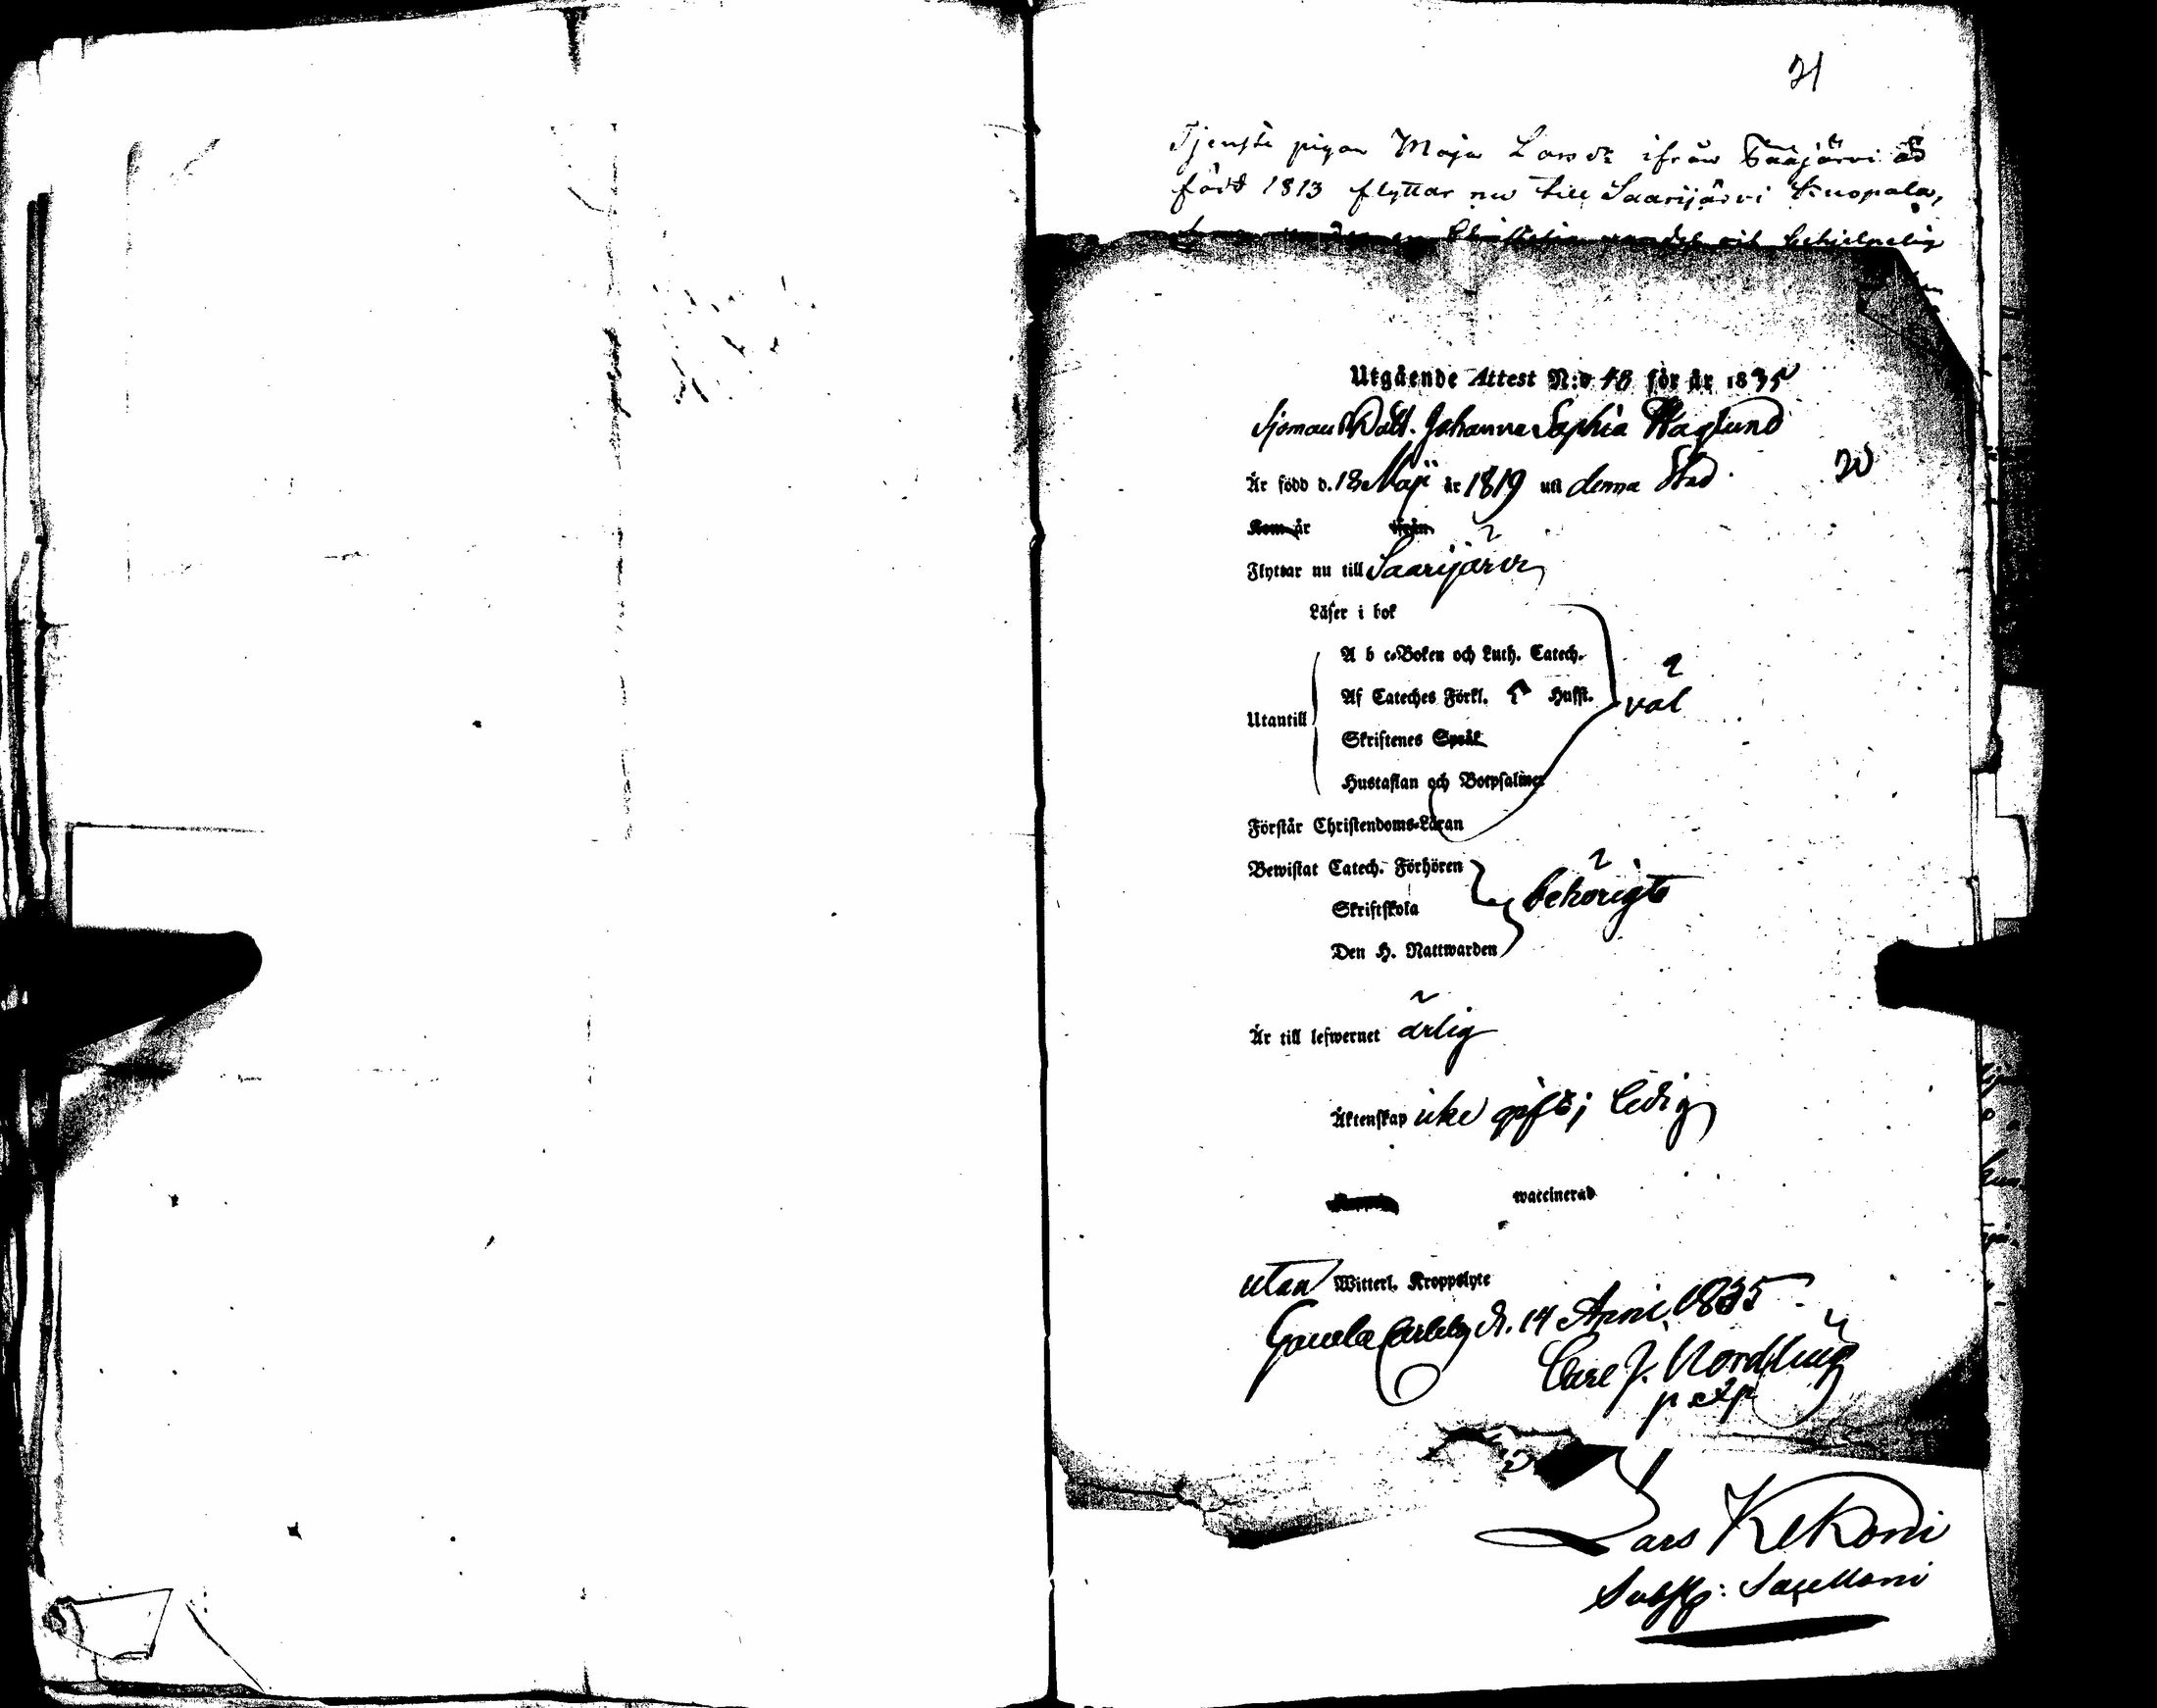 21
Tjenste pigan Maja Larsdr ifrån Saarijärvi är
född 1813 flyttar nu till Saarijärvi Kuopala,
en Christelig vandel och behjelpelig
Utgående Attest N:o 48 för år 1835
Sjömans Dott. Johanna Sophia Haglund
20
Är född d. 18 Maji år 1819 uti denna Stad
Kom år ifrån
Flyttar nu till Saarijärvi
Läser i bok
A b c-Boken och Luth. Catech.
Af Cateches Förkl. Husst.
väl
Utantill
Skriftenes Språk
Hustaflan och Botpsalmer
Förstår Christendoms-Läran
Bewistat Catech. Förhören
behörigt
Skriftskola
Den H. Nattwarden
Är till lefwernet ärlig
Äktenskap icke gift; ledig
waccinerad
utan Witterl. Kroppslyte
Gamla Carleby d. 14 April 1835
Carl J. Nordling
Lars Kekoni
Sacellani